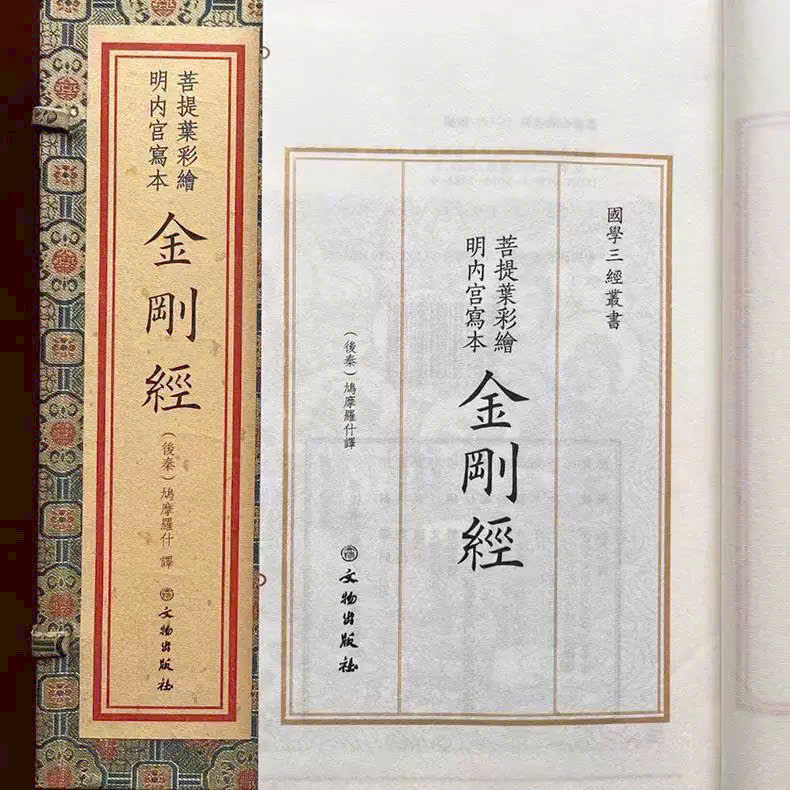 菩提葉彩繪
明内官寫本
金剛經
（後秦）鳩摩羅什 譯
文物出版社
國學三經叢書
菩提葉彩繪
明内宫寫本
金剛經
（後秦）鳩摩羅什譯
文物出版社